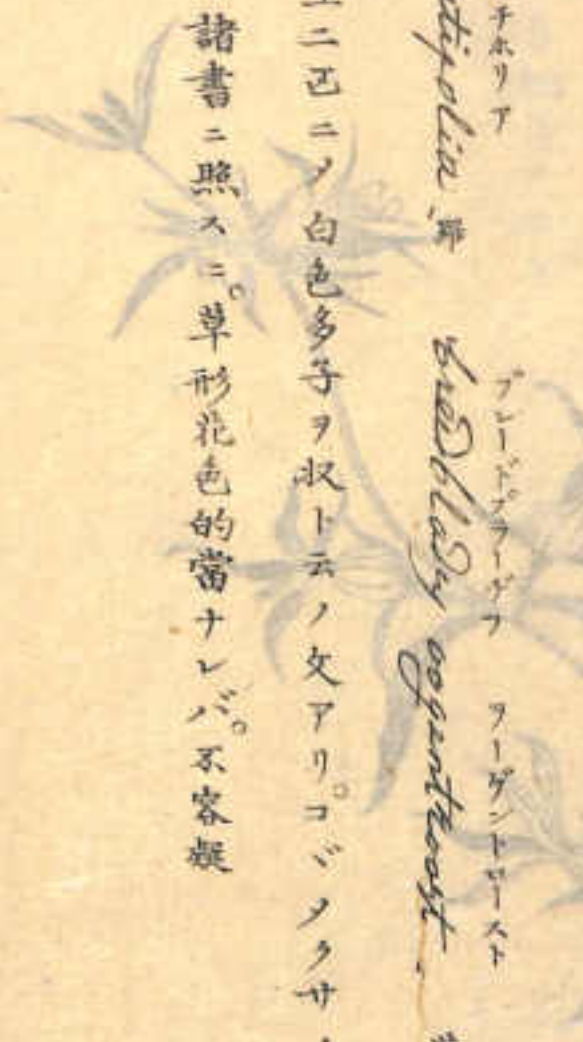 チホリア
tifolia,
ブレードブラーヂフ ヲーゲントロースト
breedbladig oogentroost,
ニ ノ白色多子ヲ収ト云ノ文アリ。コヾメクサ
諸書ニ照スニ。草形花色的當ナレバ。不容疑